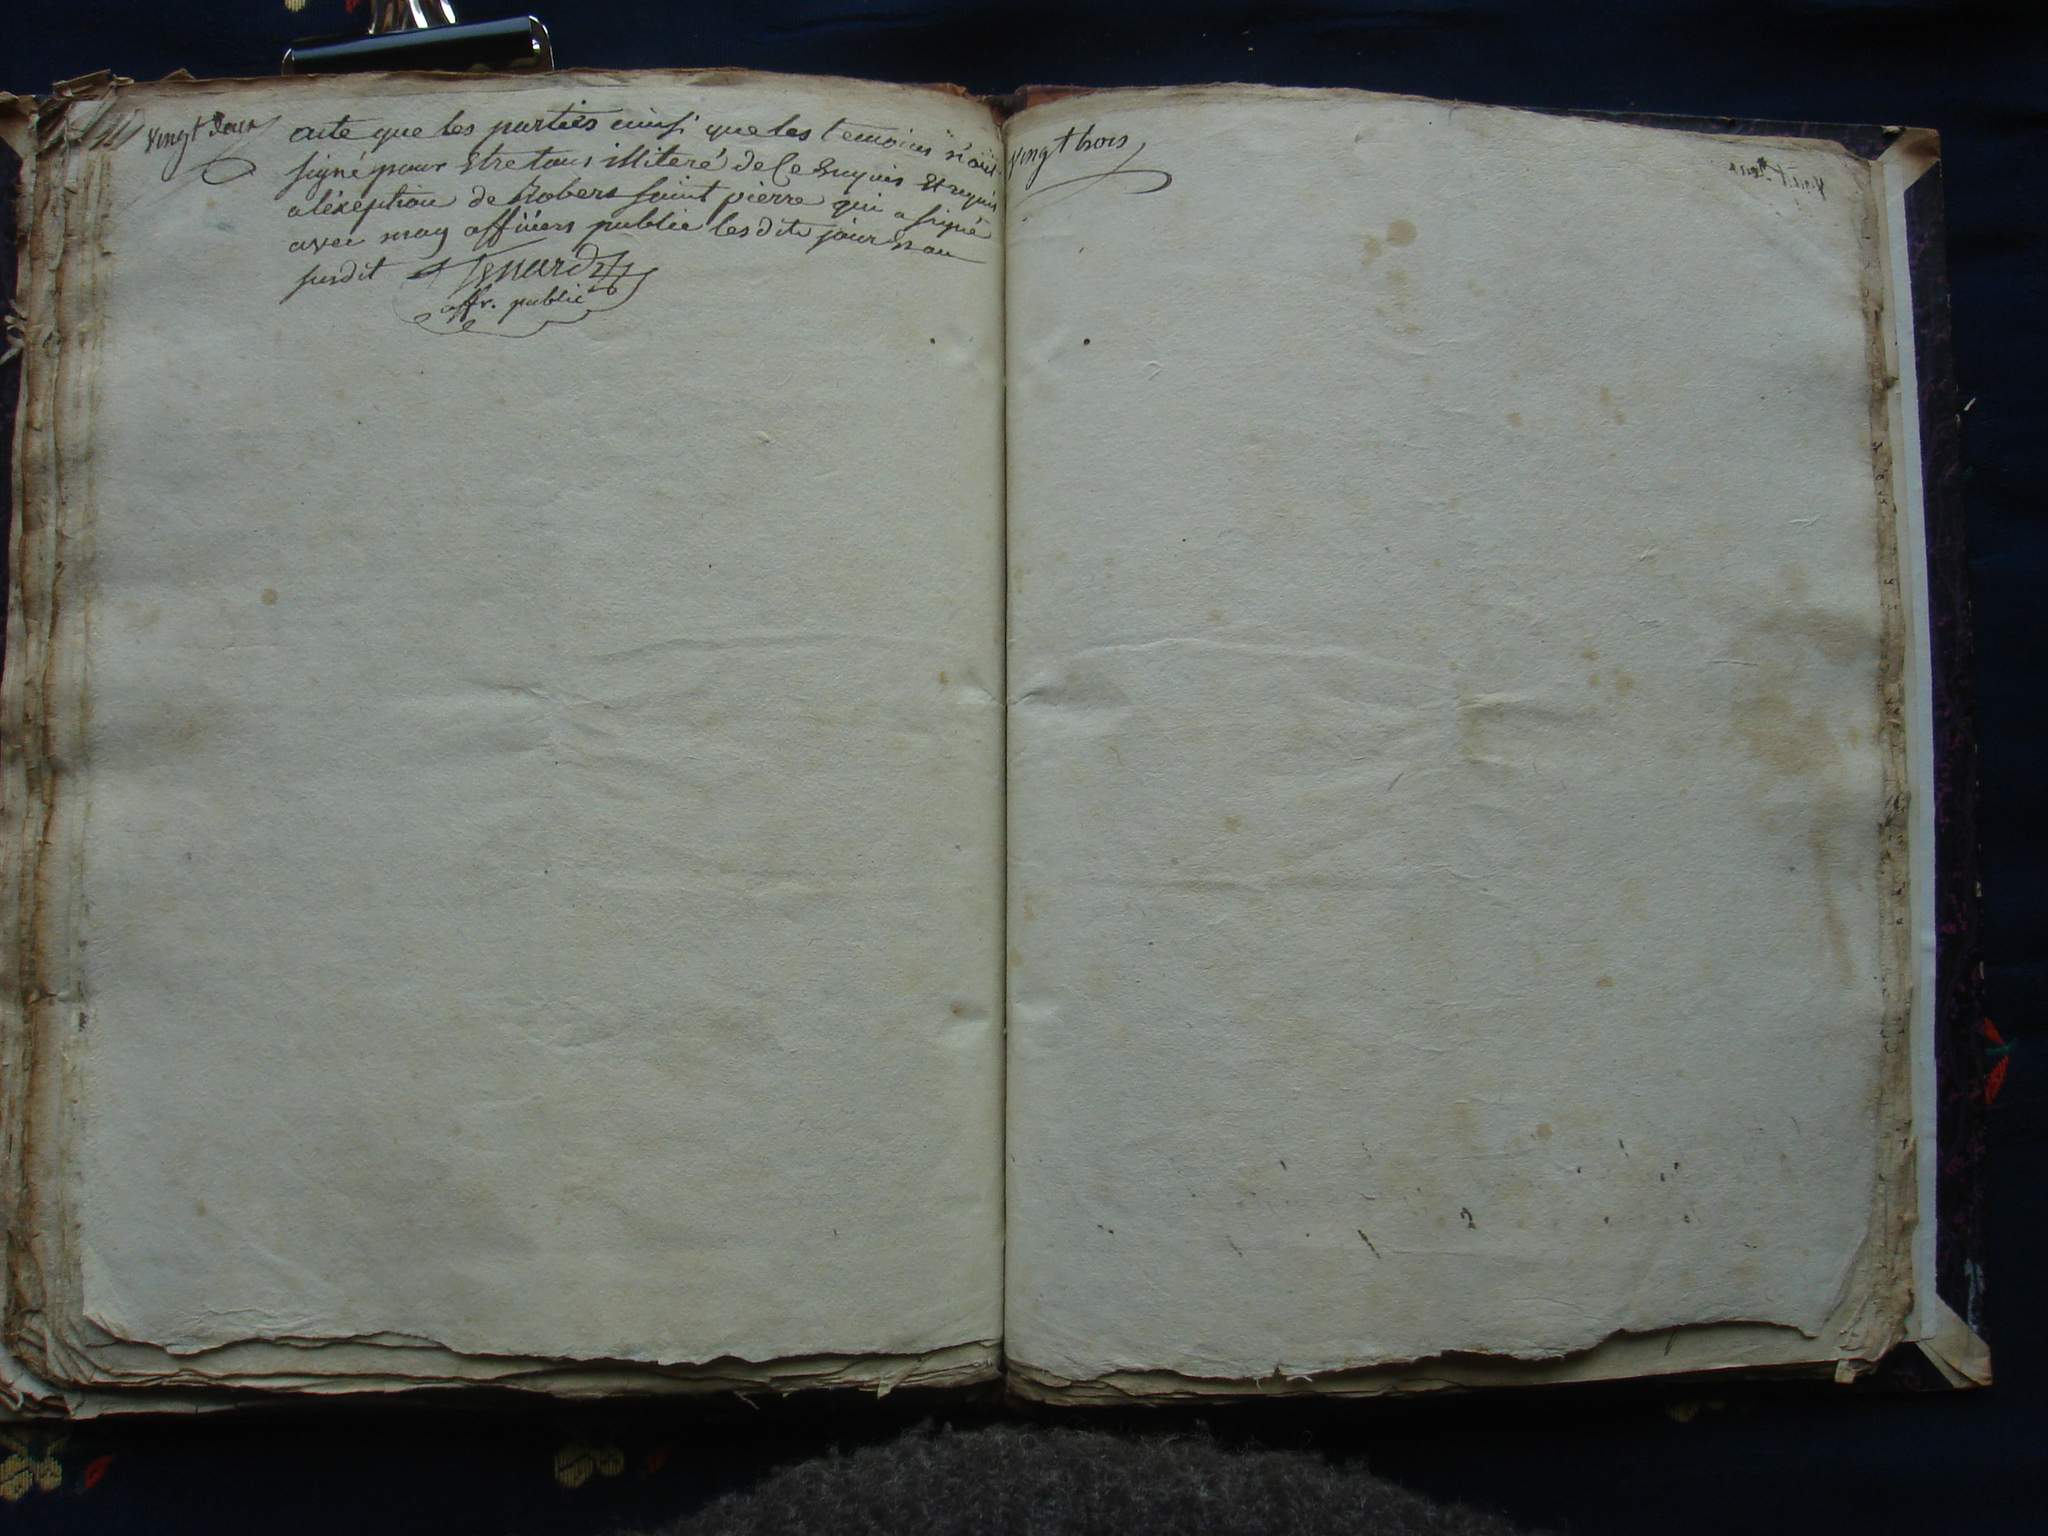 vingt deux
acte que les parties ainsi que les temoins n'ont
signé pour Etre tous illiteré de Ce Enquis Et requis
a lexeption de Robers saint pierre qui a signé
avec moy officiers public les dits jour n au
susdit
offr. public
vingt trois